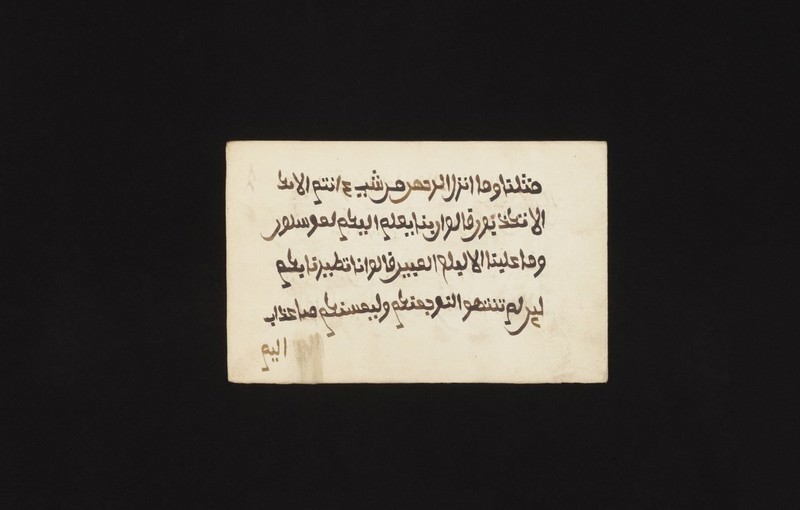 مثلنا وما انزل الرحمن من شيء انتم الا تك
الا تكذبون قالوا ربنا يعلم اليكم لمرسلون
وما علينا الا المبين قالوا انا تطيرنا بكم
لين لم تنتهوا لنرجمنكم وليمسنكم منا عذاب
اليم